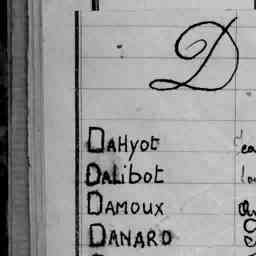 D
Dahyot
Dalibot
Damoux
Danard